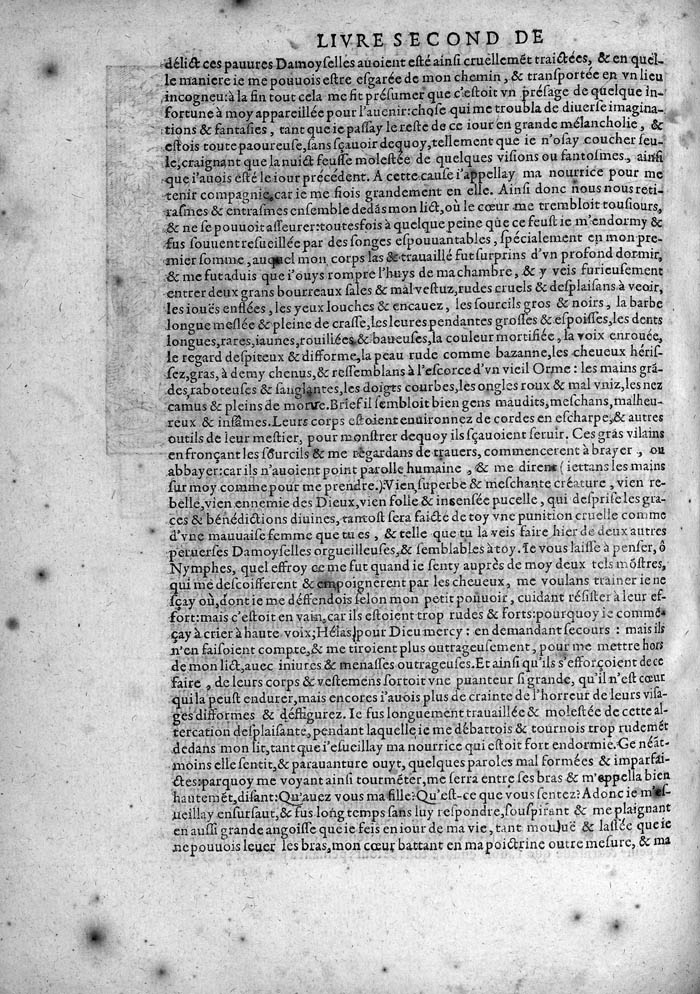 LIVRE SECOND DE
délict ces pauures Damoyselles auoient esté ainsi cruellemẽt traictées, & en quel-
le maniere ie me pouuois estre esgarée de mon chemin, & transportée en vn lieu
incogneu: à la fin tout cela me fit présumer que c'estoit vn présage de quelque in-
fortune à moy appareillée pour l'auenir: chose qui me troubla de diuerse imagina-
tions & fantasies, tant que ie passay le reste de ce iour en grande mélancholie, &
estois toute paoureuse, sans sçauoir dequoy, tellement que ie n'osay coucher seu-
le, craignant que la nuict feusse molestée de quelques visions ou fantosmes, ainsi
que i'auois esté le iour précédent. A cette cause i'appellay ma nourrice pour me
tenir compagnie, car ie me fiois grandement en elle. Ainsi donc nous nous reti-
rasmes & entrasmes ensemble dedãs mon lict, où le cœur me trembloit tousiours,
& ne se pouuoit asseurer: toutesfois à quelque peine que ce feust ie m'endormy &
fus souuent resueillée par des songes espouuantables, spécialement en mon pre-
mier somme, auquel mon corps las & trauaillé fut surprins d'vn profond dormir,
& me fut aduis que i'ouys rompre l'huys de ma chambre, & y veis furieusement
entrer deux grans bourreaux sales & mal vestuz, rudes cruels & desplaisans à veoir,
les iouës enflées, les yeux louches & encauez, les sourcils gros & noirs, la barbe
longue meslée & pleine de crasse, les leures pendantes grosses & espoisses, les dents
longues, rares, iaunes, rouillées & baueuses, la couleur mortifiée, la voix enrouée,
le regard despiteux & difforme, la peau rude comme bazanne, les cheueux héris-
sez, gras, à demy chenus, & ressemblans à l'escorce d'vn vieil Orme: les mains grã-
des, raboteuses & sanglantes, les doigts courbes, les ongles roux & mal vniz, les nez
camus & pleins de morue. Brief il sembloit bien gens maudits, meschans, malheu-
reux & infâmes. Leurs corps estoient enuironnez de cordes en escharpe, & autres
outils de leur mestier, pour monstrer dequoy ils sçauoient seruir. Ces gras vilains
en fronçant les sourcils & me regardans de trauers, commencerent à brayer, ou
abbayer: car ils n'auoient point parolle humaine, & me dirent (iettans les mains
sur moy comme pour me prendre.) Vien, superbe & meschante créature, vien re-
belle, vien ennemie des Dieux, vien folle & insensée pucelle, qui desprise les gra-
ces & bénédictions diuines, tantost sera faicte de toy vne punition cruelle comme
d'vne mauuaise femme que tu es, & telle que tu la veis faire hier de deux autres
peruerses Damoyselles orgueilleuses, & semblables à toy. Ie vous laisse à penser, ô
Nymphes, quel effroy ce me fut quand ie senty auprès de moy deux tels mõstres,
qui me descoifferent & empoignerent par les cheueux, me voulans trainer ie ne
sçay où, dont ie me déffendois selon mon petit pouuoir, cuidant résister à leur ef-
fort: mais c'estoit en vain, car ils estoient trop rudes & forts: pourquoy ie commẽ-
çay à crier à haute voix; Hélas, pour Dieu mercy: en demandant secours: mais ils
n'en faisoient compte, & me tiroient plus outrageusement, pour me mettre hors
de mon lict, auec iniures & menasses outrageuses. Et ainsi qu'ils s'efforçoient de ce
faire, de leurs corps & vestemens sortoit vne puanteur si grande, qu'il n'est cœur
qui la peust endurer, mais encores i'auois plus de crainte de l'horreur de leurs visa-
ges difformes & déffigurez. Ie fus longuement trauaillée & molestée de cette al-
tercation desplaisante, pendant laquelle ie me débattois & tournois trop rudemẽt
dedans mon lit, tant que i'esueillay ma nourrice qui estoit fort endormie. Ce néãt-
moins elle sentit, & parauanture ouyt, quelques paroles mal formées & imparfai-
ctes: parquoy me voyant ainsi tourmẽter, me serra entre ses bras & m'appella bien
hautemẽt, disant: Qu'auez vous ma fille: Qu'est-ce que vous sentez? Adonc ie m'es-
ueillay en sursaut, & fus long temps sans luy respondre, souspirant & me plaignant
en aussi grande angoisse que ie feis en iour de ma vie, tant mouluë & lassée que ie
ne pouuois leuer les bras, mon cœur battant en ma poictrine outre mesure, & ma